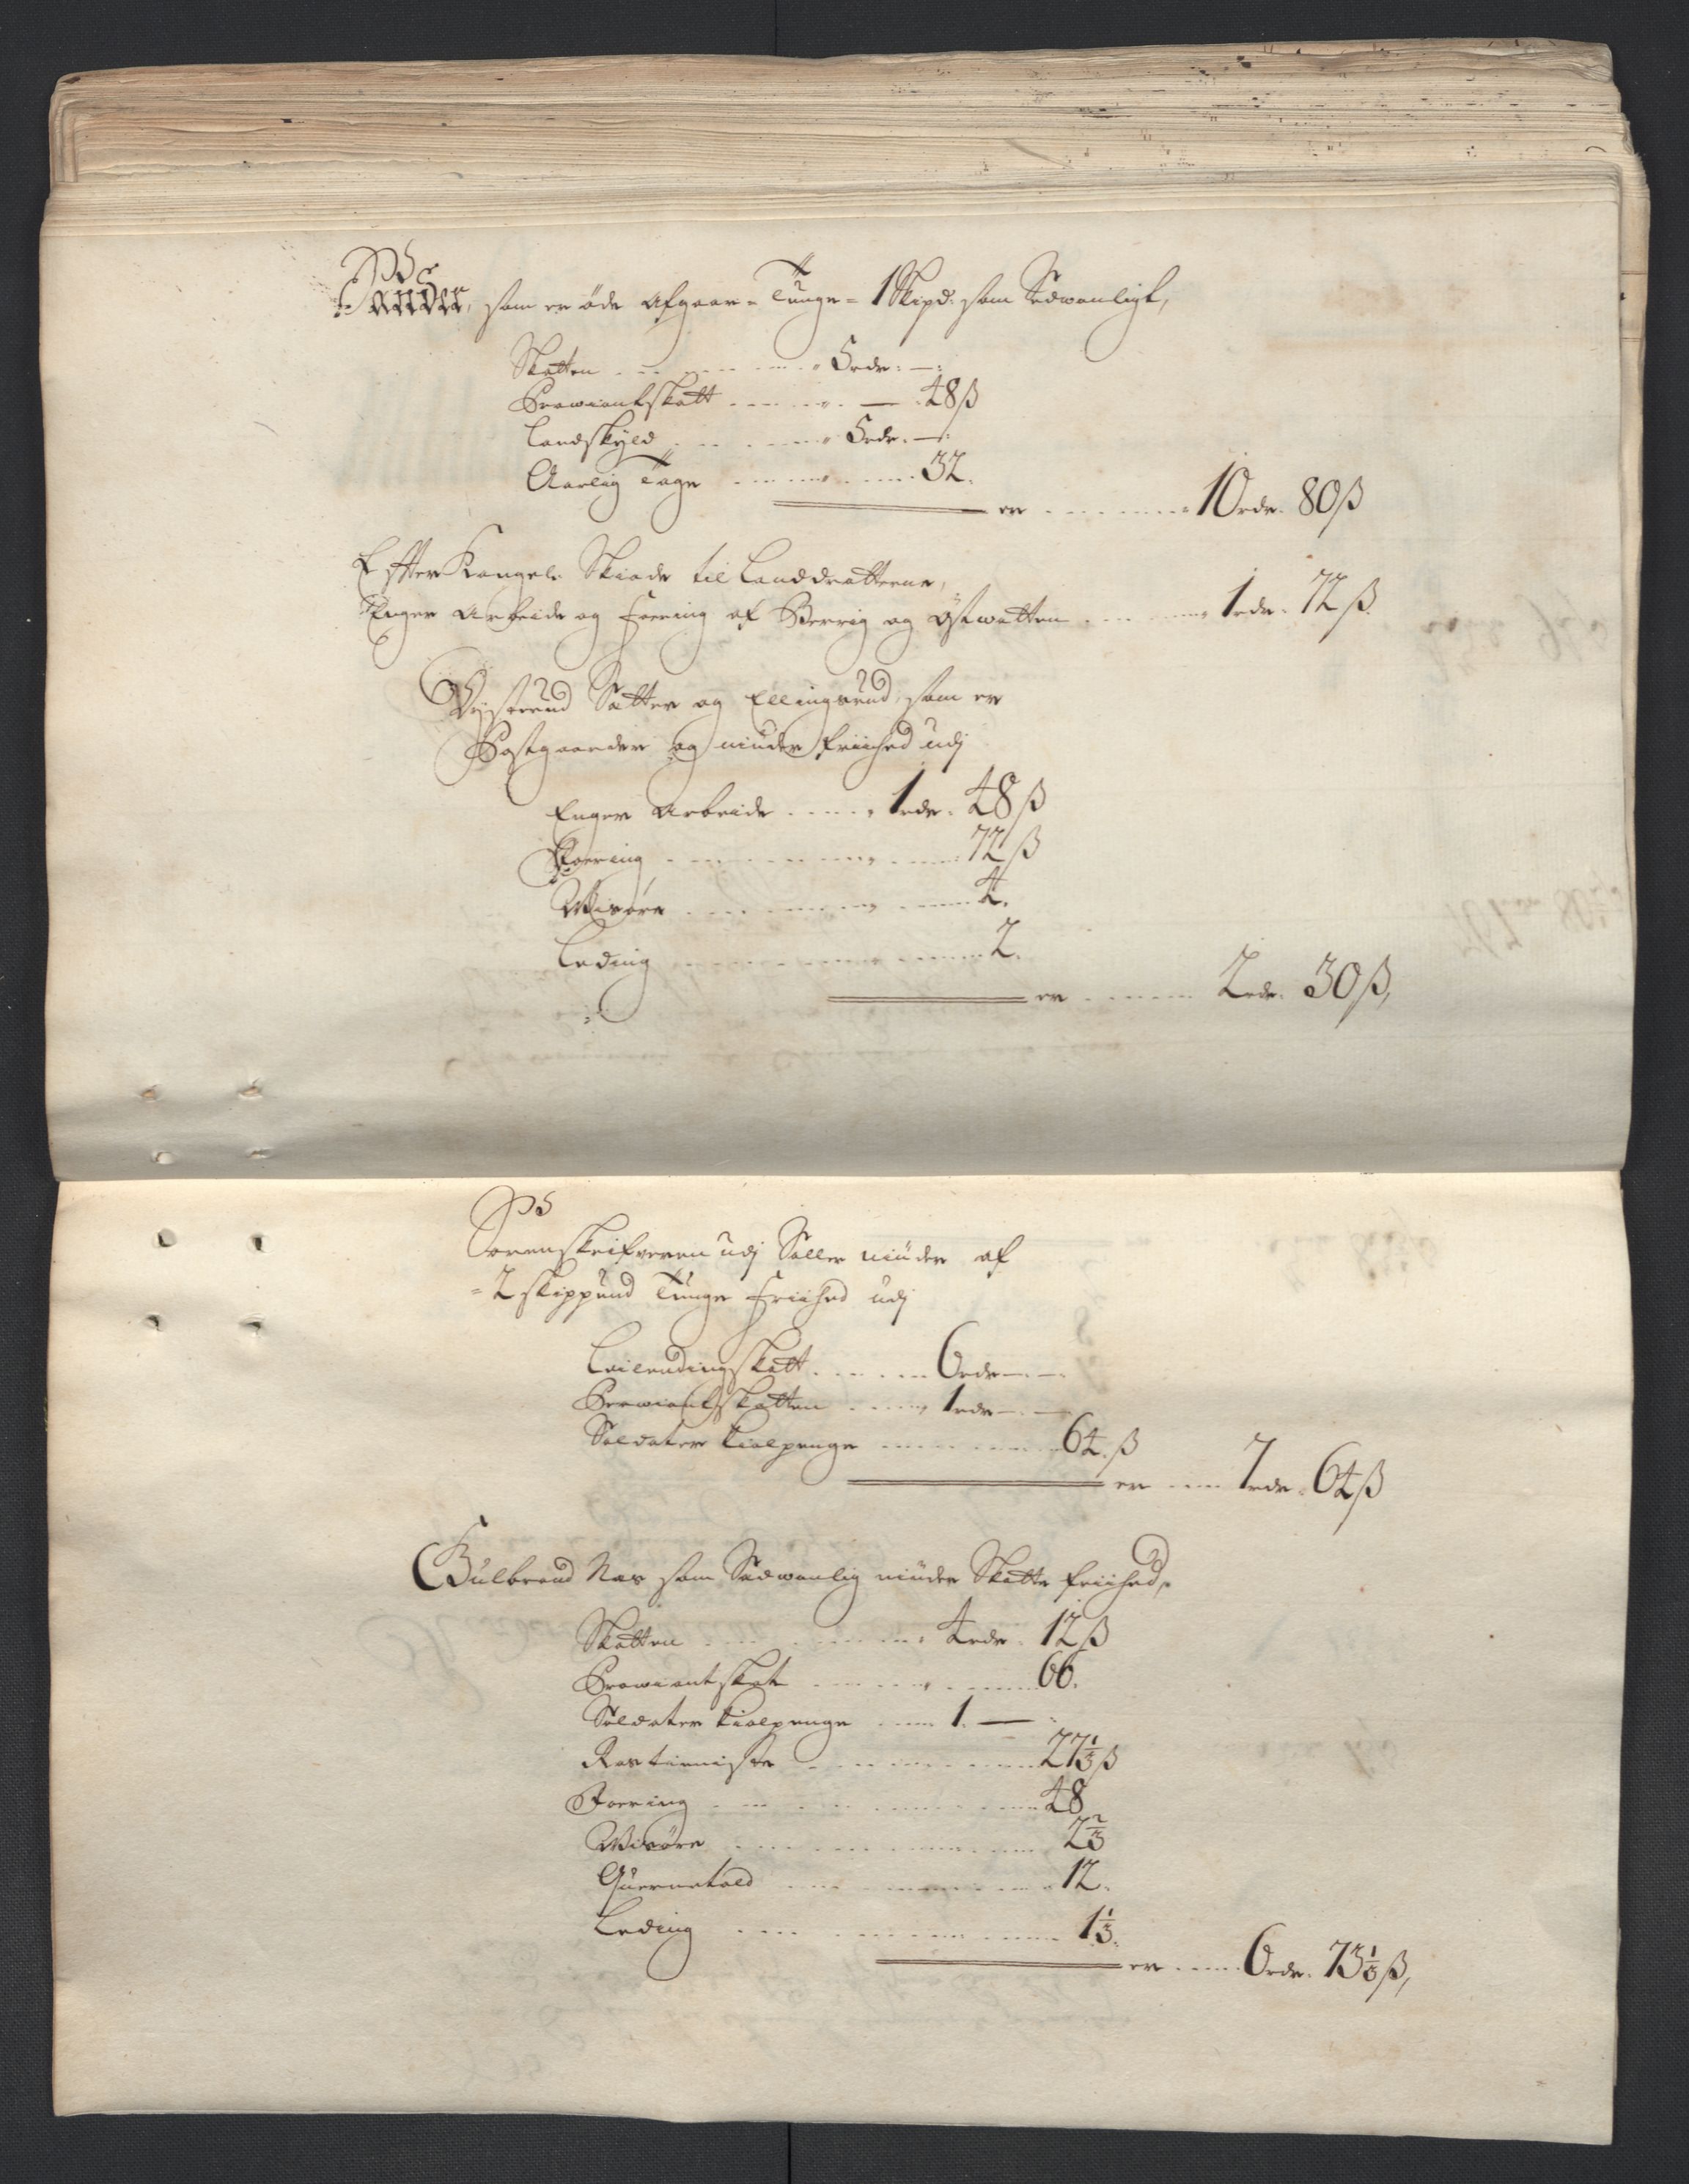 Sander, som er öde afgaar = Tunge = 1 Skipd: som Sedwanligt,
Skatten . . . . . 5 rdr: —:
Prowiantskatt . . . . . — 48 ß
Landskyld . . . . . 5 rdr. —:
Aarlig Tage . . . . . 32.
er . . . . . 10 rdr. 80 ß
Effter Kongel: Skiöde til Landdratterne,
Enger Arbeide og foering af Berrig og Østwatten . . . . 1 rdr. 72 ß
Sætter og Ellingsrud, som er
Postgaarder og niuder friihed udj
Enger Arbeide . . . . 1 rdr. 48 ß
Foering . . . . . 72 ß
Wisöre . . . . . 4.
Leding . . . . . 2.
er . . . . . 2 rdr. 30 ß,
Sorenskrifveren udj Soller niuder af
= 2 skippund Tunge friihed udj
Leilendingskatt . . . . . 6 rdr — —
Prowiantskatten . . . . 1 rdr — —
Soldater Kiolpenge . . . . . 64. ß
er . . . . 7 rdr. 64 ß
Gulbrand Næs som Sedwanlig niuder Skatte friihed,
Skatten . . . . . 4 rdr. 12 ß
Prowiantskat . . . . . 66.
Soldater kiolpenge . . . . 1. —
Rostieniste . . . . . 27 1/3 ß
Foering . . . . . 48
Wisöre . . . . . 2 2/3
Quernetold . . . . . 12.
Leding . . . . . 1 1/3.
er . . . . . 6 rdr. 73 1/3 ß,